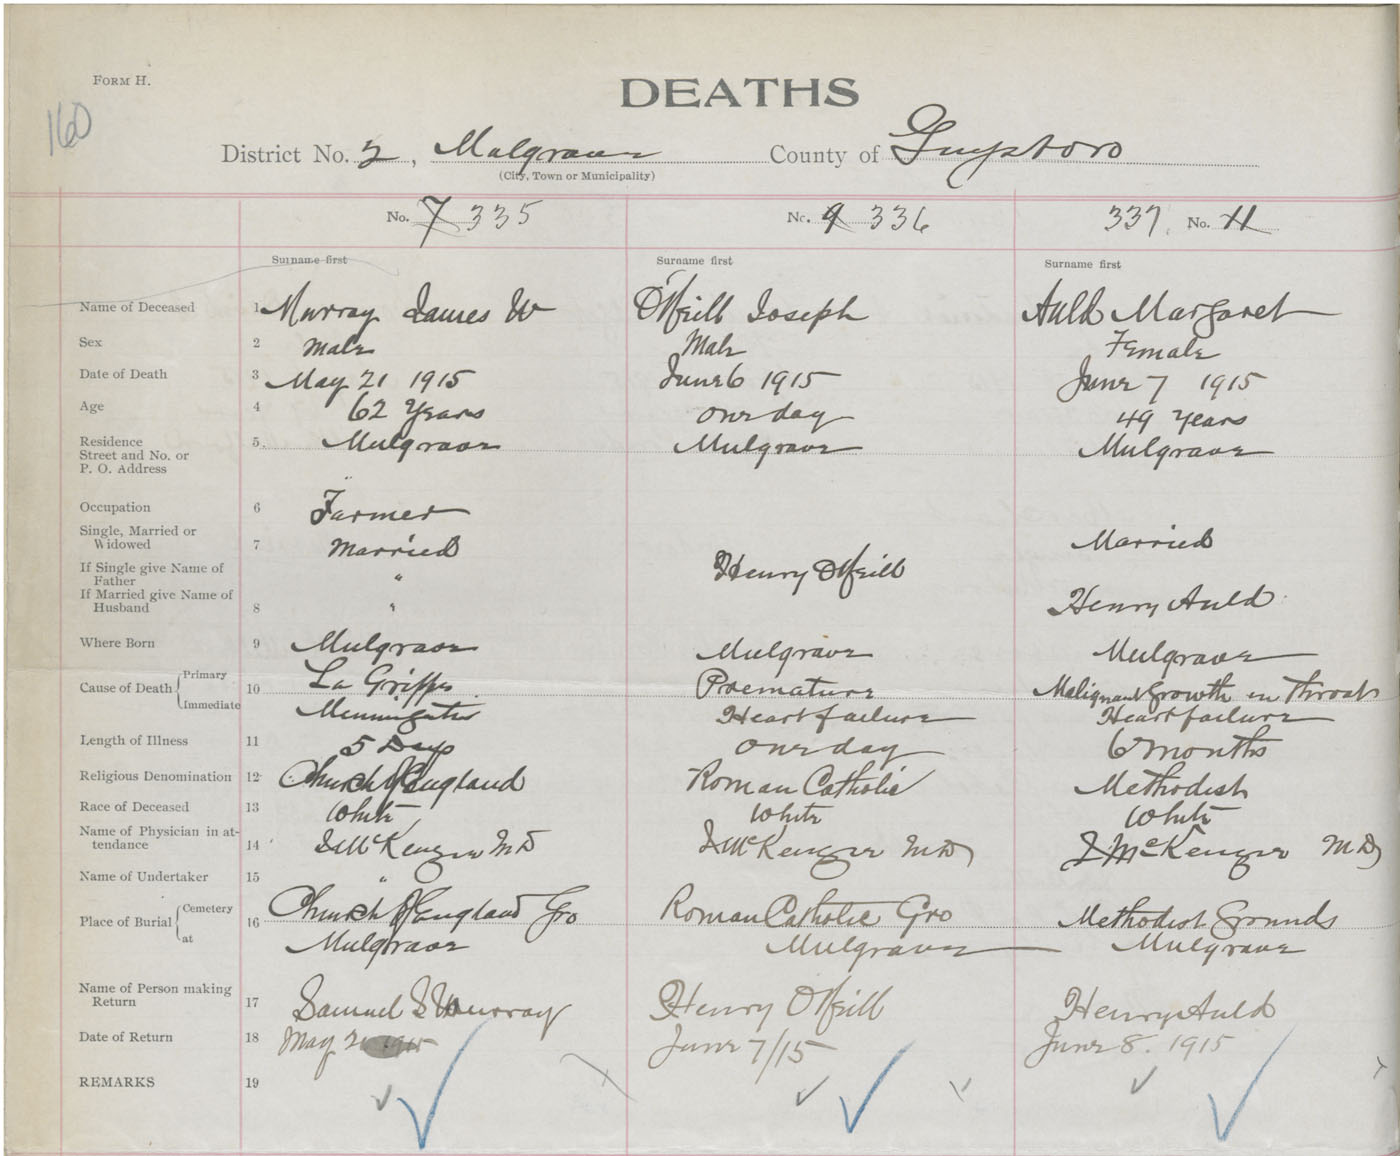 FORM H.
160
DEATHS
District No. 2, Mulgrave County of Guysboro
(City, Town or Municipality)
No. 7 335 No. 9 336 337 No. 11
Surname first Surname first Surname first
Name of Deceased 1 Murray James W O'Neill Joseph Auld Margaret
Sex 2 Male Male Female
Date of Death 3 May 21 1915 June 6 1915 June 7 1915
Age 4 62 Years one day 49 Years
Residence 5. Mulgrave Mulgrave Mulgrave
Street and No. or
P. O. Address
Occupation 6 Farmer
Single, Married or
Widowed 7 Married Married
If Single give Name of
Father " Henry O'Neill
If Married give Name of
Husband 8 " Henry Auld
Where Born 9 Mulgrave Mulgrave Mulgrave
Cause of Death Primary 10 La Grippe Premature Malignant Growth in Throat
Immediate Menningitis Heart failure Heart failure
Length of Illness 11 5 Days one day 6 months
Religious Denomination 12 Church of England Roman Catholic Methodist
Race of Deceased 13 White White White
Name of Physician in at-
tendance 14 McKenzie MD McKenzie MD McKenzie MD
Name of Undertaker 15 "
Place of Burial Cemetery 16 Church of England Gro Roman Catholic Gro Methodist Grounds
at Mulgrave Mulgrave Mulgrave
Name of Person making
Return 17 Samuel S Murray Henry O'Neill Henry Auld
Date of Return 18 May 1915 June 7/15 June 8. 1915
REMARKS 19